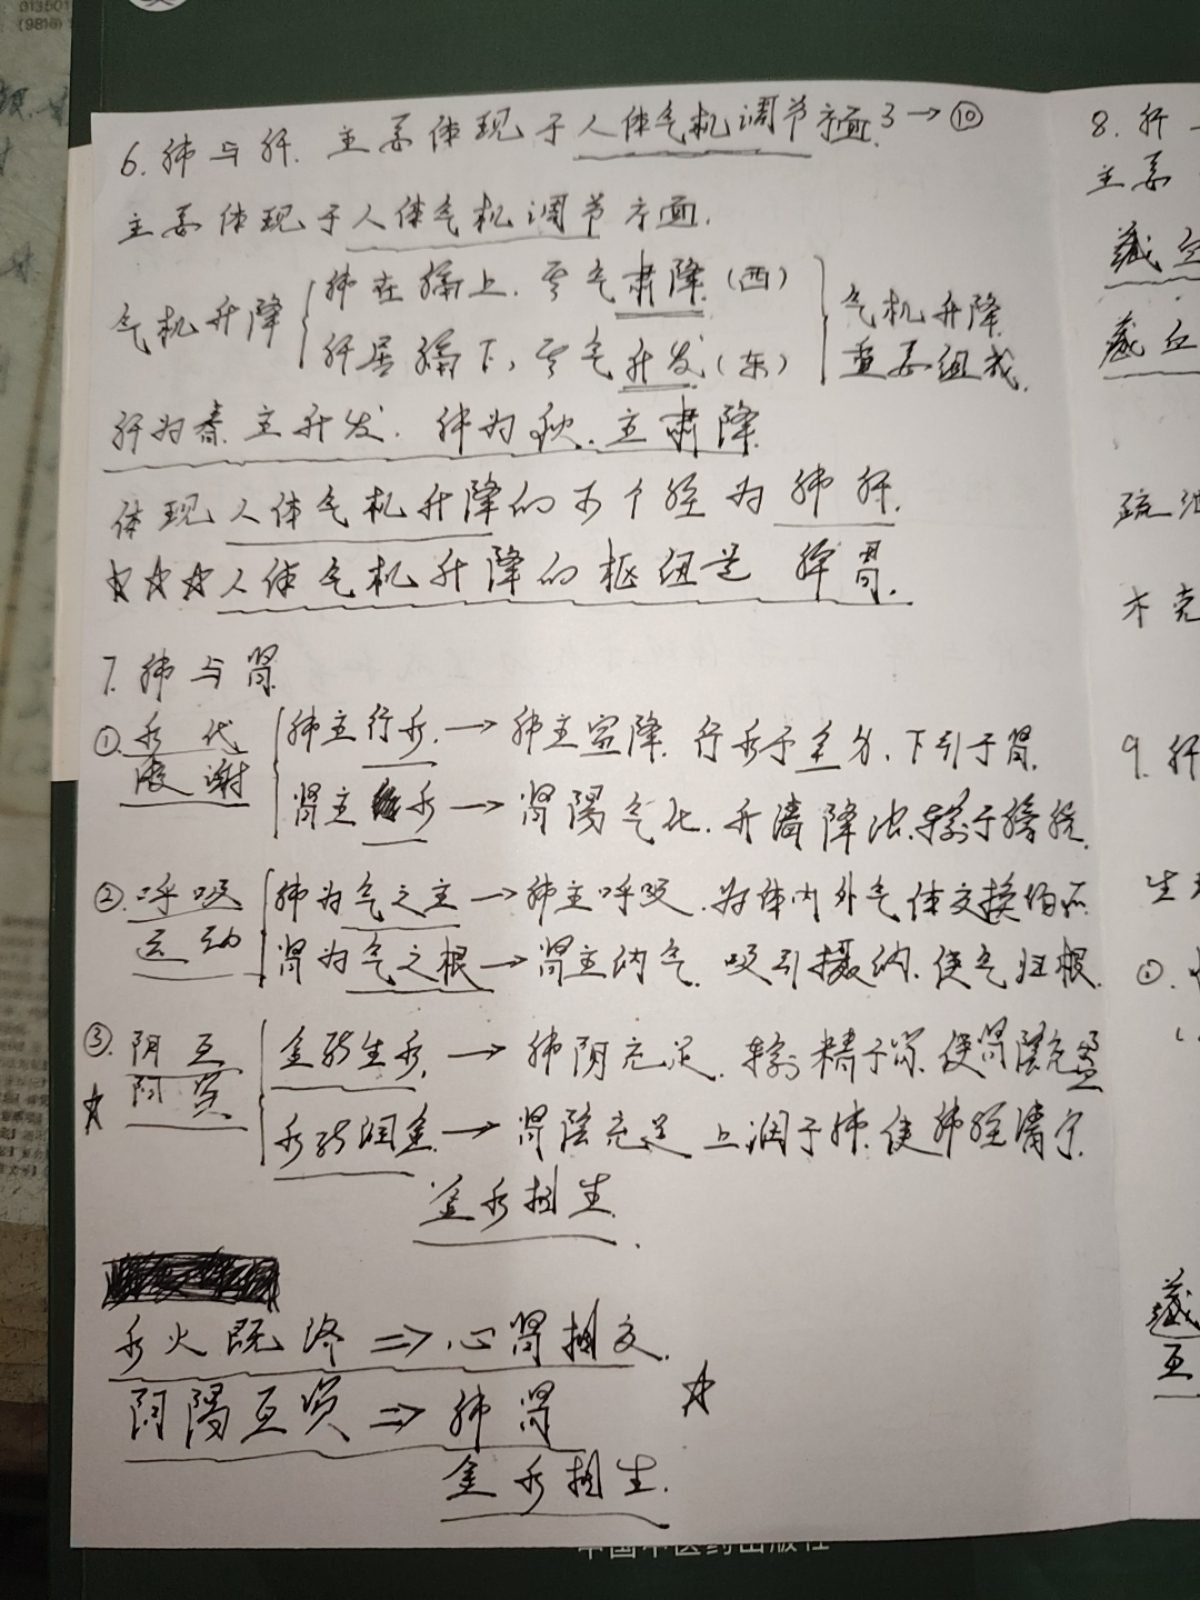 6. 肺与肝. 主要体现于人体气机调节方面. 3→⑩
主要体现于人体气机调节方面.
气机升降
肺在膈上. 其气肃降. (西)
肝居膈下, 其气升发. (东)
气机升降
重要组成.
肝为春. 主升发. 肺为秋. 主肃降.
体现人体气机升降的两个经为肺肝.
☆☆☆人体气机升降的枢纽是 脾胃.
7. 肺与肾.
①. 水液
代谢
肺主行水. → 肺主宣降. 行水于全身. 下引于肾.
肾主水 → 肾阳气化. 升清降浊. 输于膀胱.
②. 呼吸
运动
肺为气之主 → 肺主呼吸. 为体内外气体交换场所
肾为气之根 → 肾主纳气. 吸引摄纳. 使气归根.
③. 阴阳
互资
☆
金能生水. → 肺阴充足. 输精于肾. 使肾阴充盈
水能润金. → 肾阴充足 上润于肺. 使肺经清宁.
金水相生.
水火既济 ⇒ 心肾相交.
阴阳互资 ⇒ 肺肾 ☆
金水相生.
8. 肝
主要
藏
藏
疏泄
木克
9. 肝
生
①.
藏
互
中国中医药出版社
013501
(9816)